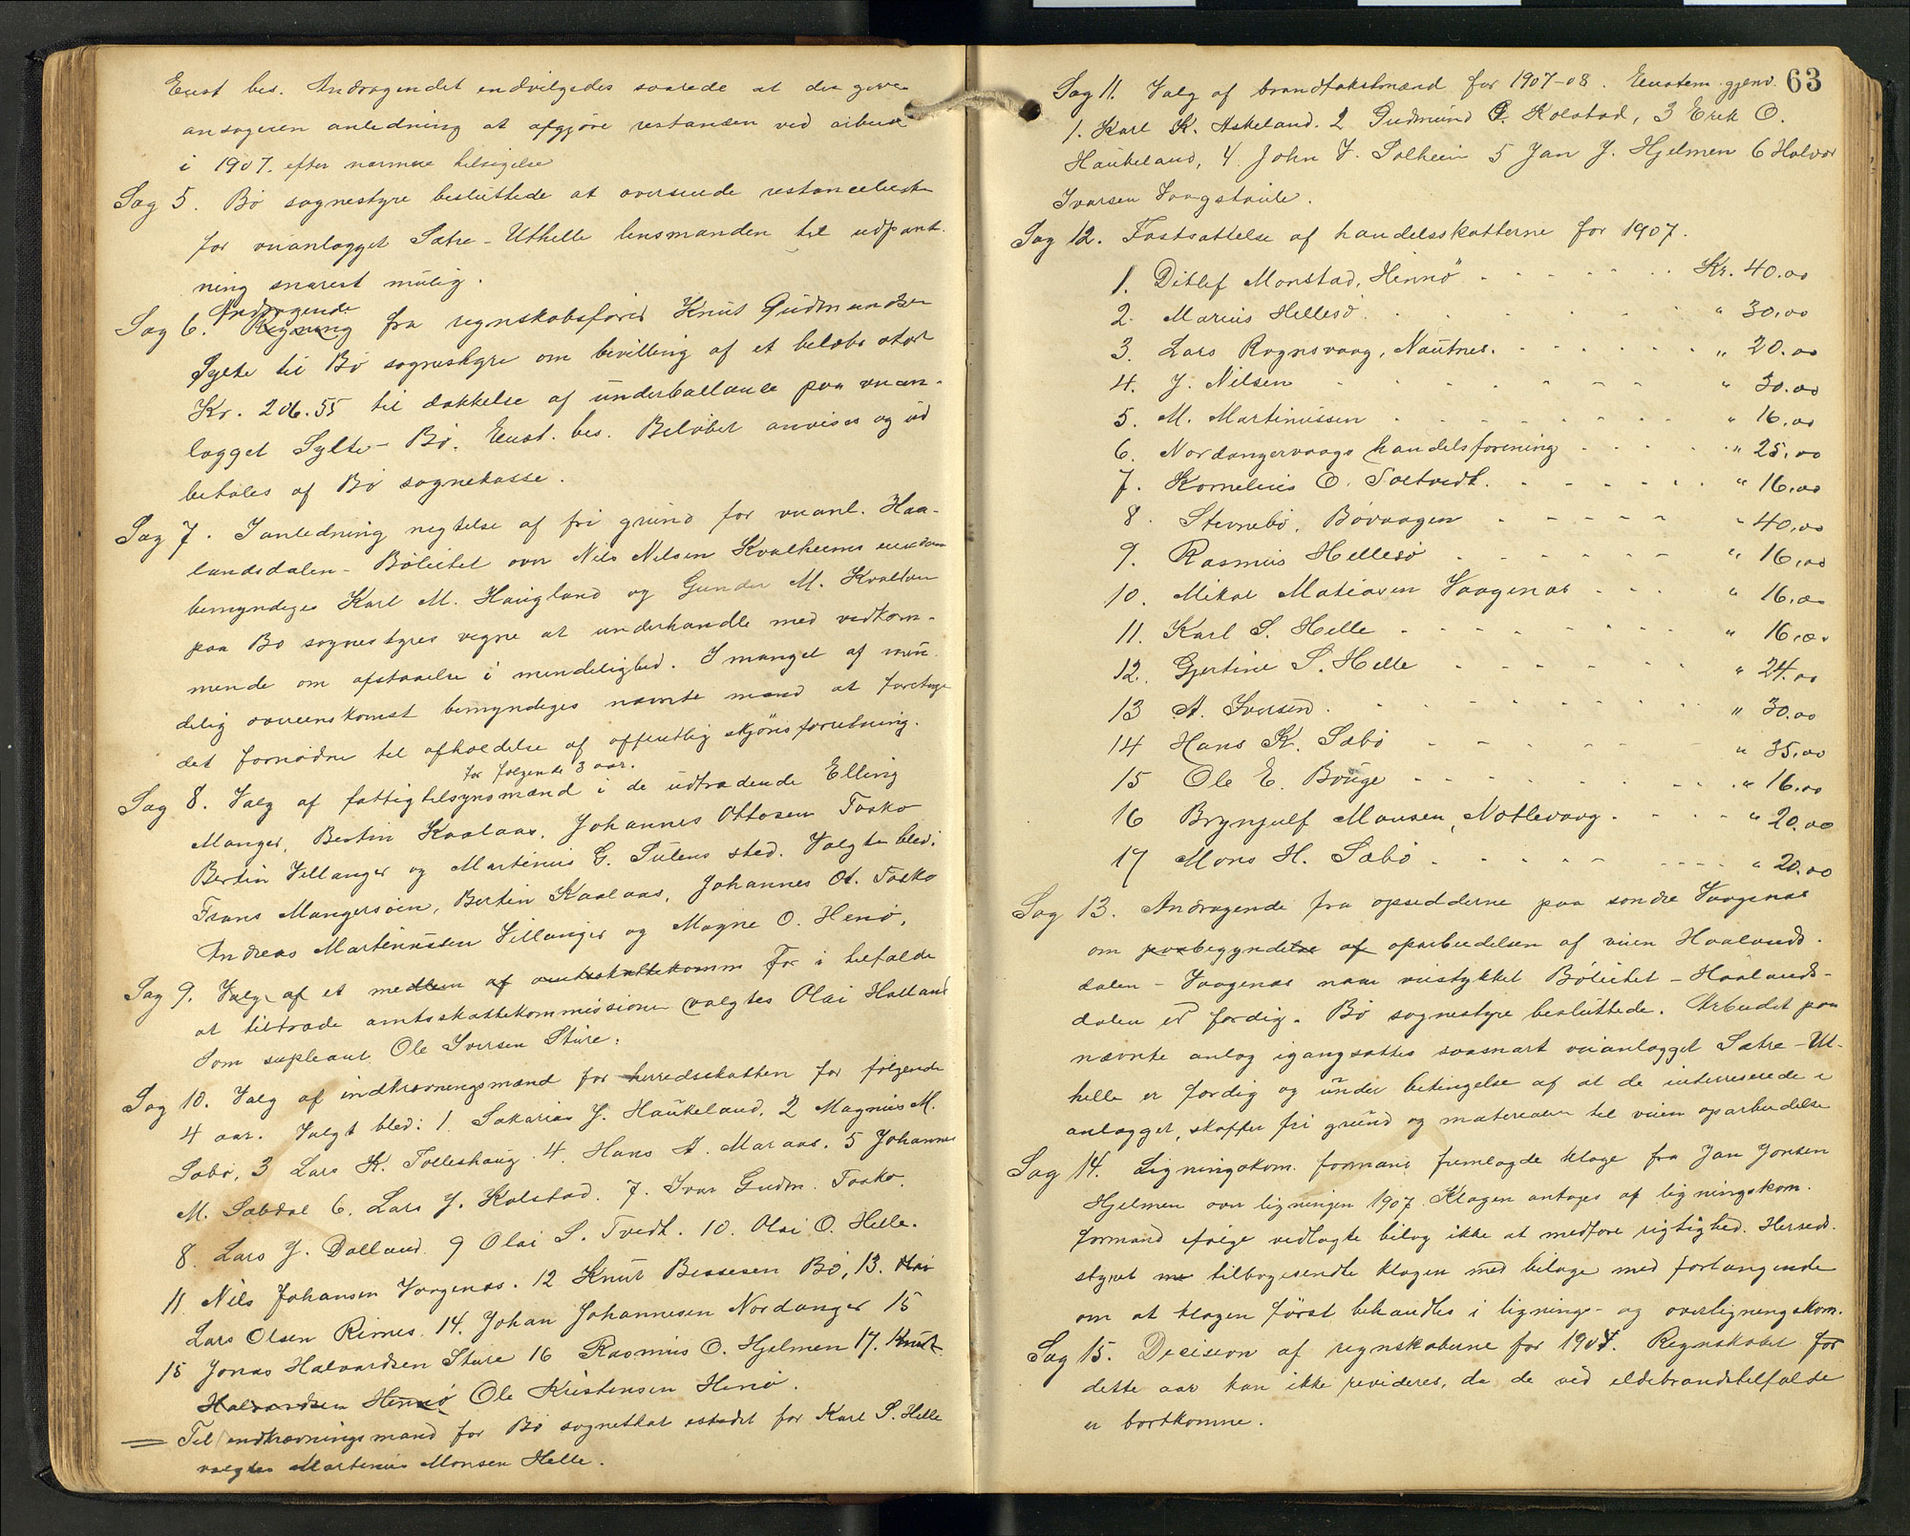 Enst bes. Andragendet indvilgedes saalede at der gives
ansøgeren anledning at afgjøre restansen ved arbeide
i 1907. efter nærmere tilsigelse
Sag 5. Bø sognestyre besluttede at oversende restanceliste
for veianlægget Sætre - Uthelle lensmanden til udpant-
ning snarest mulig.
Andragende
Sag 6. Regning fra regnskabsfører Knut Gudmundsen
Sylte til Bø sognestyre om bevilling af et beløb stor
Kr. 206.55 til dækkelse af underballance paa vean-
lægget Sylte - Bø. Enst. bes. Beløbet anvises og ud
betales af Bø sognekasse.
Sag 7. I anledning negtelse af fri grund for veanl. Haa-
landsdalen - Bøleitet over Nils Nilsen Kvalheims eiendom
bemyndiges Karl M. Haugland og Gunder M. Kvalhem
paa Bø sognestyres vegne at underhandle med vedkom-
mende om afstaaelse i mindelighed. I mangel af min
delig overenskomst bemyndiges nævnte mænd at foretage
det fornødne til afholdelse af offentlig skjønsforretning.
for følgende 3 aar.
Sag 8. Valg af fattigtilsynsmænd i de udtrædende Elling
Manger, Bertin Kaalaas, Johannes Ottosen Toska
Bertin Villanger og Martinus G. Sulens sted. Valgte blev:
Frans Mangersøen, Bertin Kaalaas, Johannes Ot. Toska
Andreas Martinussen Villanger og Magne O. Henø.
Sag 9. Valg af et medlem af amtsskattekomm For i tilfælde
at tiltræde amtsskattekommissionen valgtes Olai Halland
Som supleant Ole Iversen Sture.
Sag 10. Valg af indkrævningsmænd for herredsskatten for følgende
4 aar. Valgt blev: 1. Sakarias J. Haukeland, 2 Magnus M.
Sæbø, 3 Lars K. Tolleshaug. 4. Hans A. Maraas. 5 Johannes
M. Sæbdal 6. Lars J. Kolstad. 7. Ivar Gudm. Toska.
8. Lars J. Dalland. 9 Olai S. Tvedt. 10. Olai O. Helle.
11. Nils Johansen Vaagenæs. 12 Knut Bessesen Bø, 13. Olai
Lars Olsen Rimes. 14. Johan Johannesen Nordanger 15
15 Jonas Halvardsen Sture 16 Rasmus O. Hjelmen 17. Knut
Halvardsen Hennø Ole Kristensen Henø.
= Til indkrævningsmand for Bø sogneskat istedet for Karl S. Helle
valgtes Martinus Monsen Helle.
63
Sag 11. Valg af brandtakstmænd for 1907-08. Enstem. gjenv.
1. Karl K. Askeland. 2 Gudmund G. Kolstad, 3 Erik O.
Haukeland, 4. John V. Solheim 5 Jan J. Hjelmen 6 Halvor
Ivarsen Vaagstaule.
Sag 12. Fastsættelse af handelsskatterne for 1907.
1. Ditlef Monstad, Hennø Kr. 40.00
2. Marius Hellesø " 30.00
3. Lars Rognsvaag, Nautnes. " 20.00
4. J. Nilsen " 30.00
5. M. Martinussen " 16.00
6. Nordangervaags handelsforening " 25.00
7. Kornelius O. Toftvedt. " 16.00
8. Stevnebø, Bøvaagen " 40.00
9. Rasmus Hellesø " 16.00
10. Mikal Matiasen Vaagenæs " 16.00
11. Karl S. Helle " 16.00
12. Gjertine S. Helle " 24.00
13 A. Iversen. " 30.00
14 Hans K. Sæbø " 35.00
15 Ole E. Bouge " 16.00
16 Brynjulf Monsen, Notlevaag. " 20.00
17 Mons H. Sæbø. " 20.00
Sag 13. Andragende fra opsidderne paa søndre Vaagenæs
om paabegyndelse af oparbeidelsen af veien Haalands-
dalen - Vaagenæs naar veistykket Bøleitet - Haalands-
dalen er færdig. Bø sognestyre besluttede. Arbeidet paa
nævnte anlæg igangsættes saasnart veianlægget Sætre - Ut-
helle er færdig og under betingelse af at de interreserede i
anlægget, skaffer fri grund og materialer til veien oparbeidelse
Sag 14. Ligningskom. formand fremlagde klage fra Jan Jonsen
Hjelmen over ligningen 1907. Klagen antages af ligningskom.
formand ifølge vedlagte bilag ikke at medføre rigtighed. Herreds-
styret tilbagesendte klagen med bilage med forlangende
om at klagen først behandles i lignings- og overligningskom.
Sag 15. Decision af regnskaberne for 1904. Regnskabet for
dette aar kan ikke revideres, da de ved ildebrandstilfælde
er bortkomne.